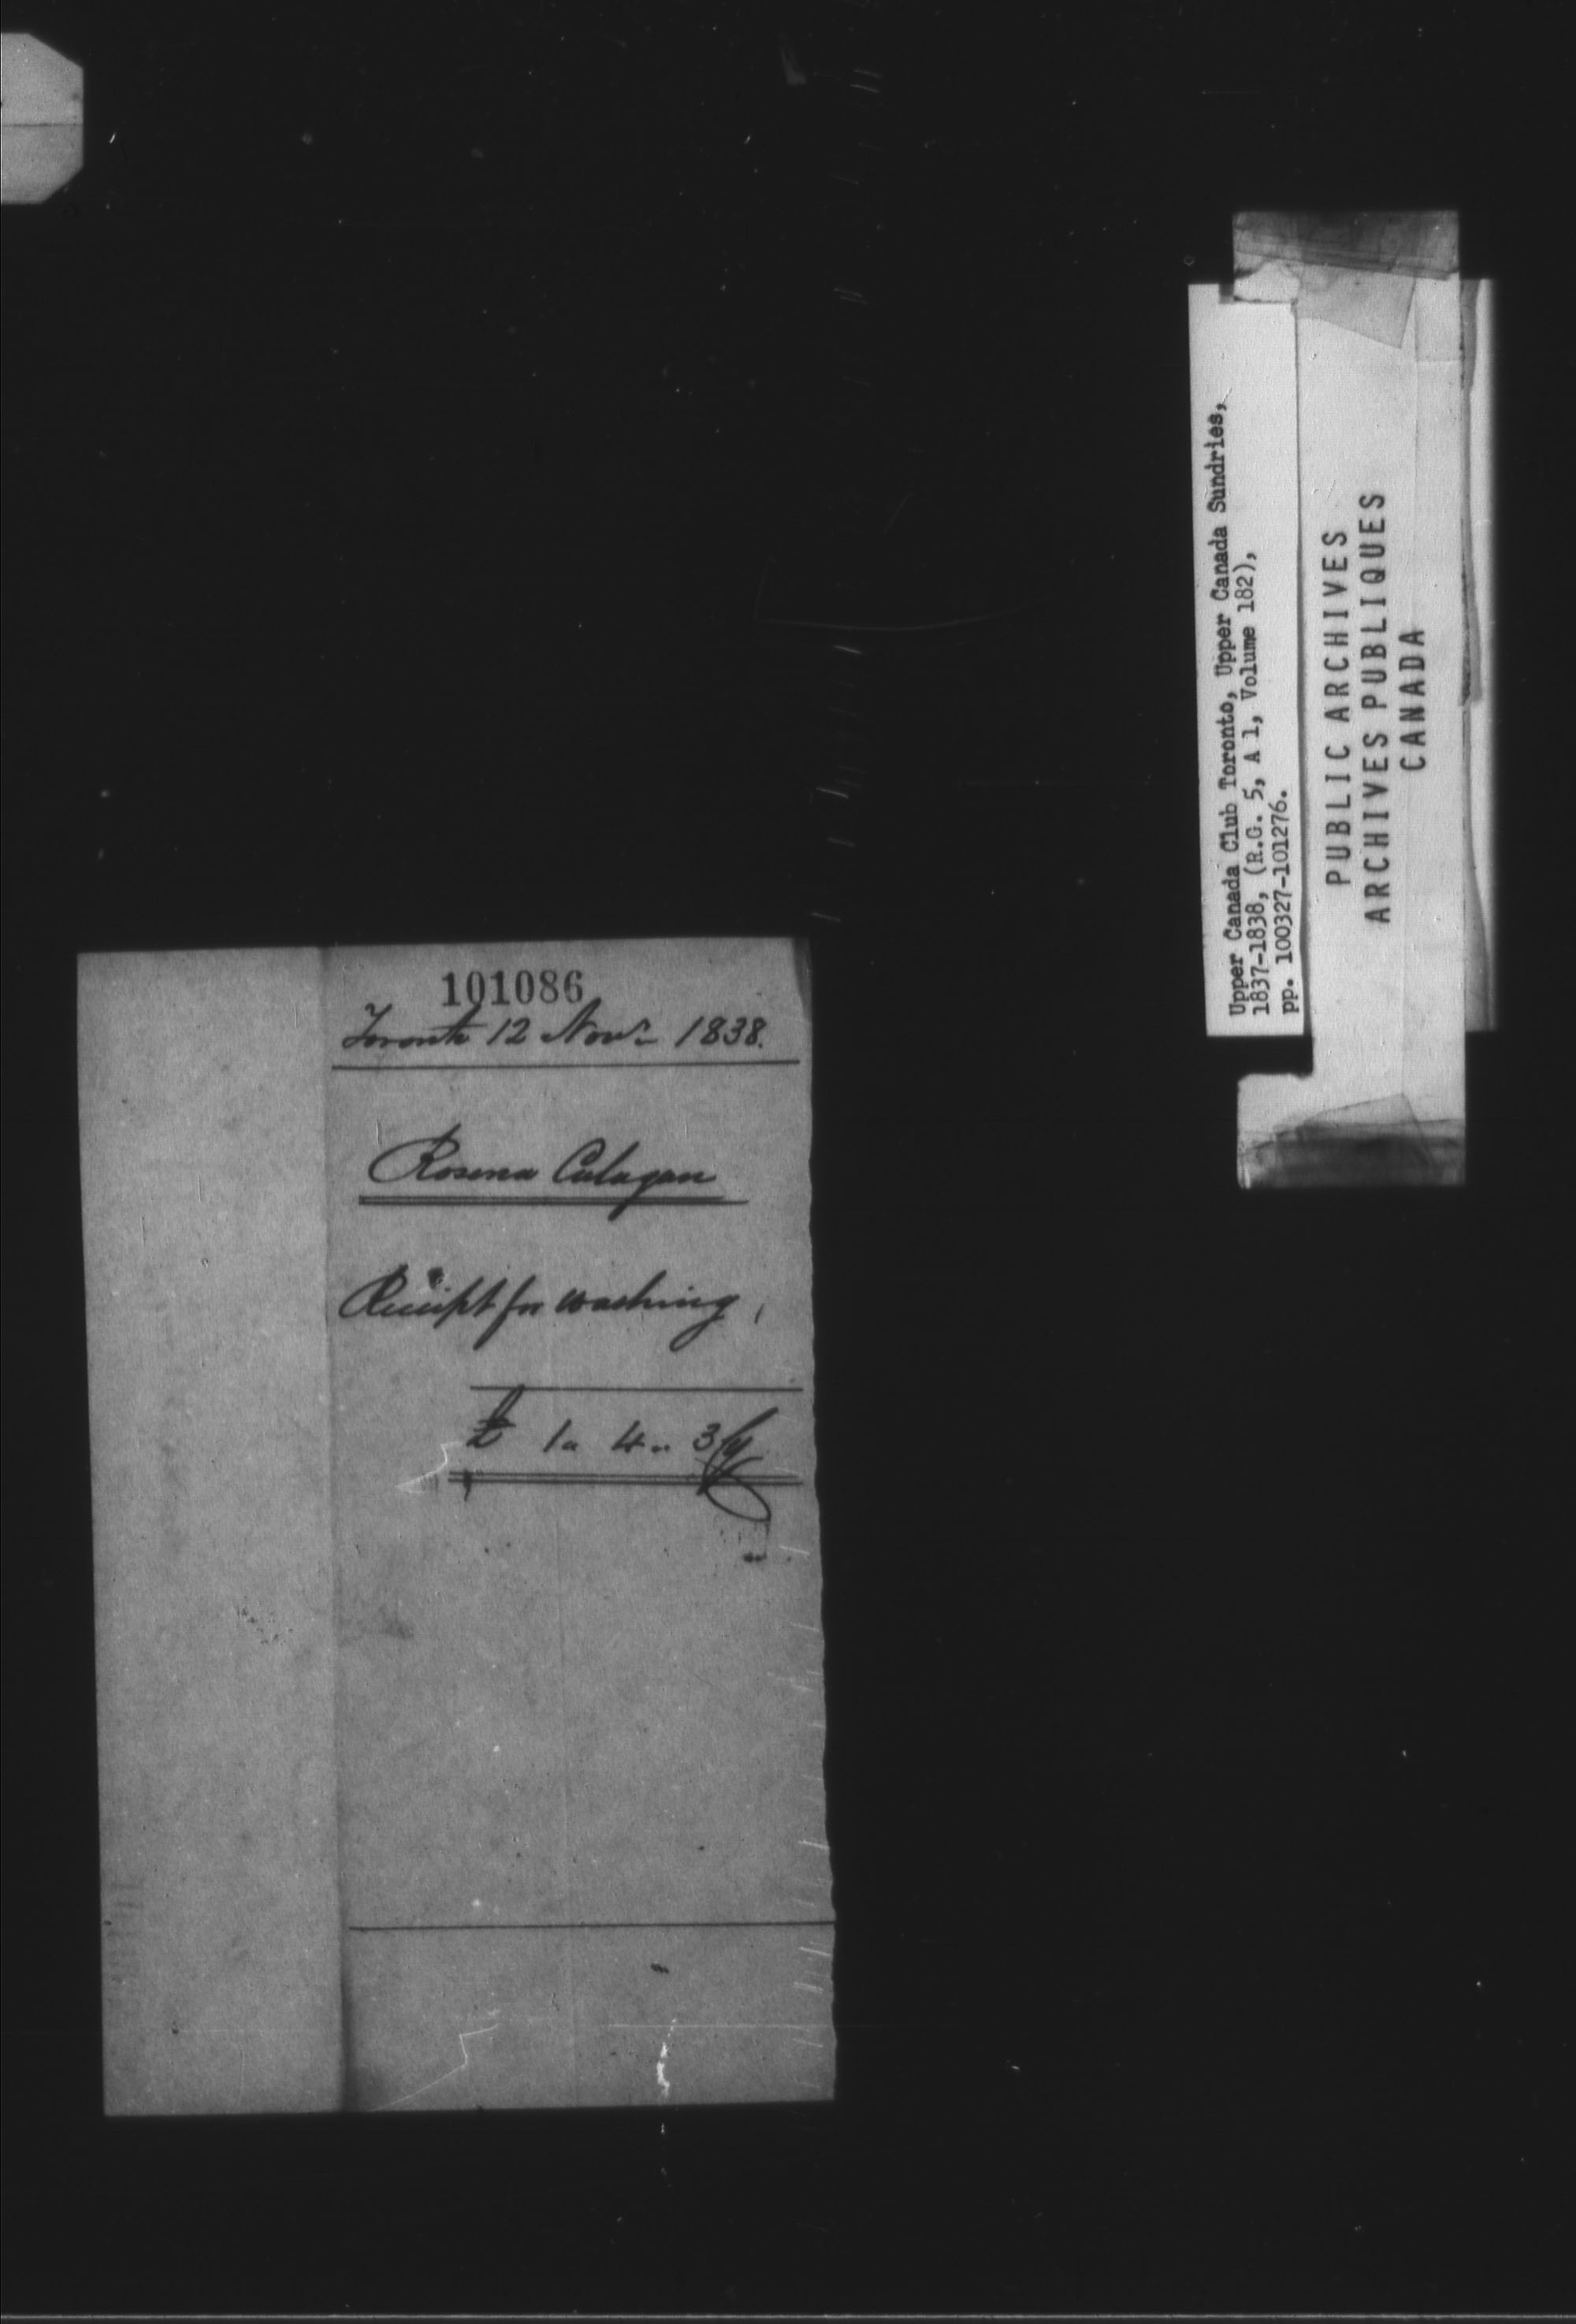 101086
Toronto 12 Novr 1838.
Rosena Calagan
Receipt for washing,
£ 1 " 4 " 3
Upper Canada Club Toronto, Upper Canada Sundries,
1837-1838, (R.G. 5, A 1, Volume 182),
pp. 100327-101276.
PUBLIC ARCHIVES
ARCHIVES PUBLIQUES
CANADA